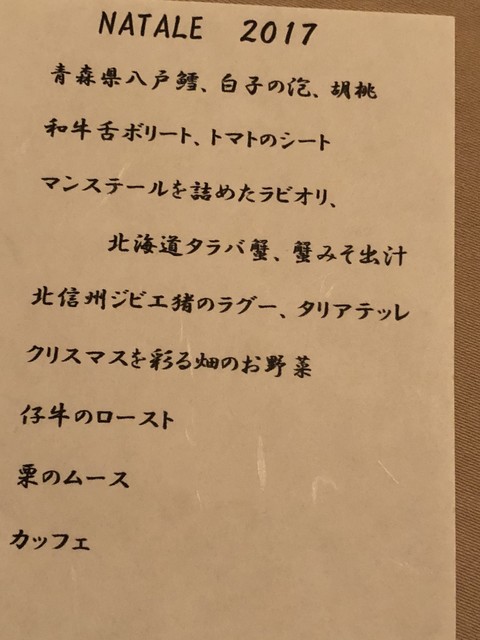 NATALE 2017
青森県八戸鱈、白子の泡、胡桃
和牛舌ボリート、トマトのシート
マンステールを詰めたラビオリ、
北海道タラバ蟹、蟹みそ出汁
北信州ジビエ猪のラグー、タリアテッレ
クリスマスを彩る畑のお野菜
仔牛のロースト
栗のムース
カッフェ